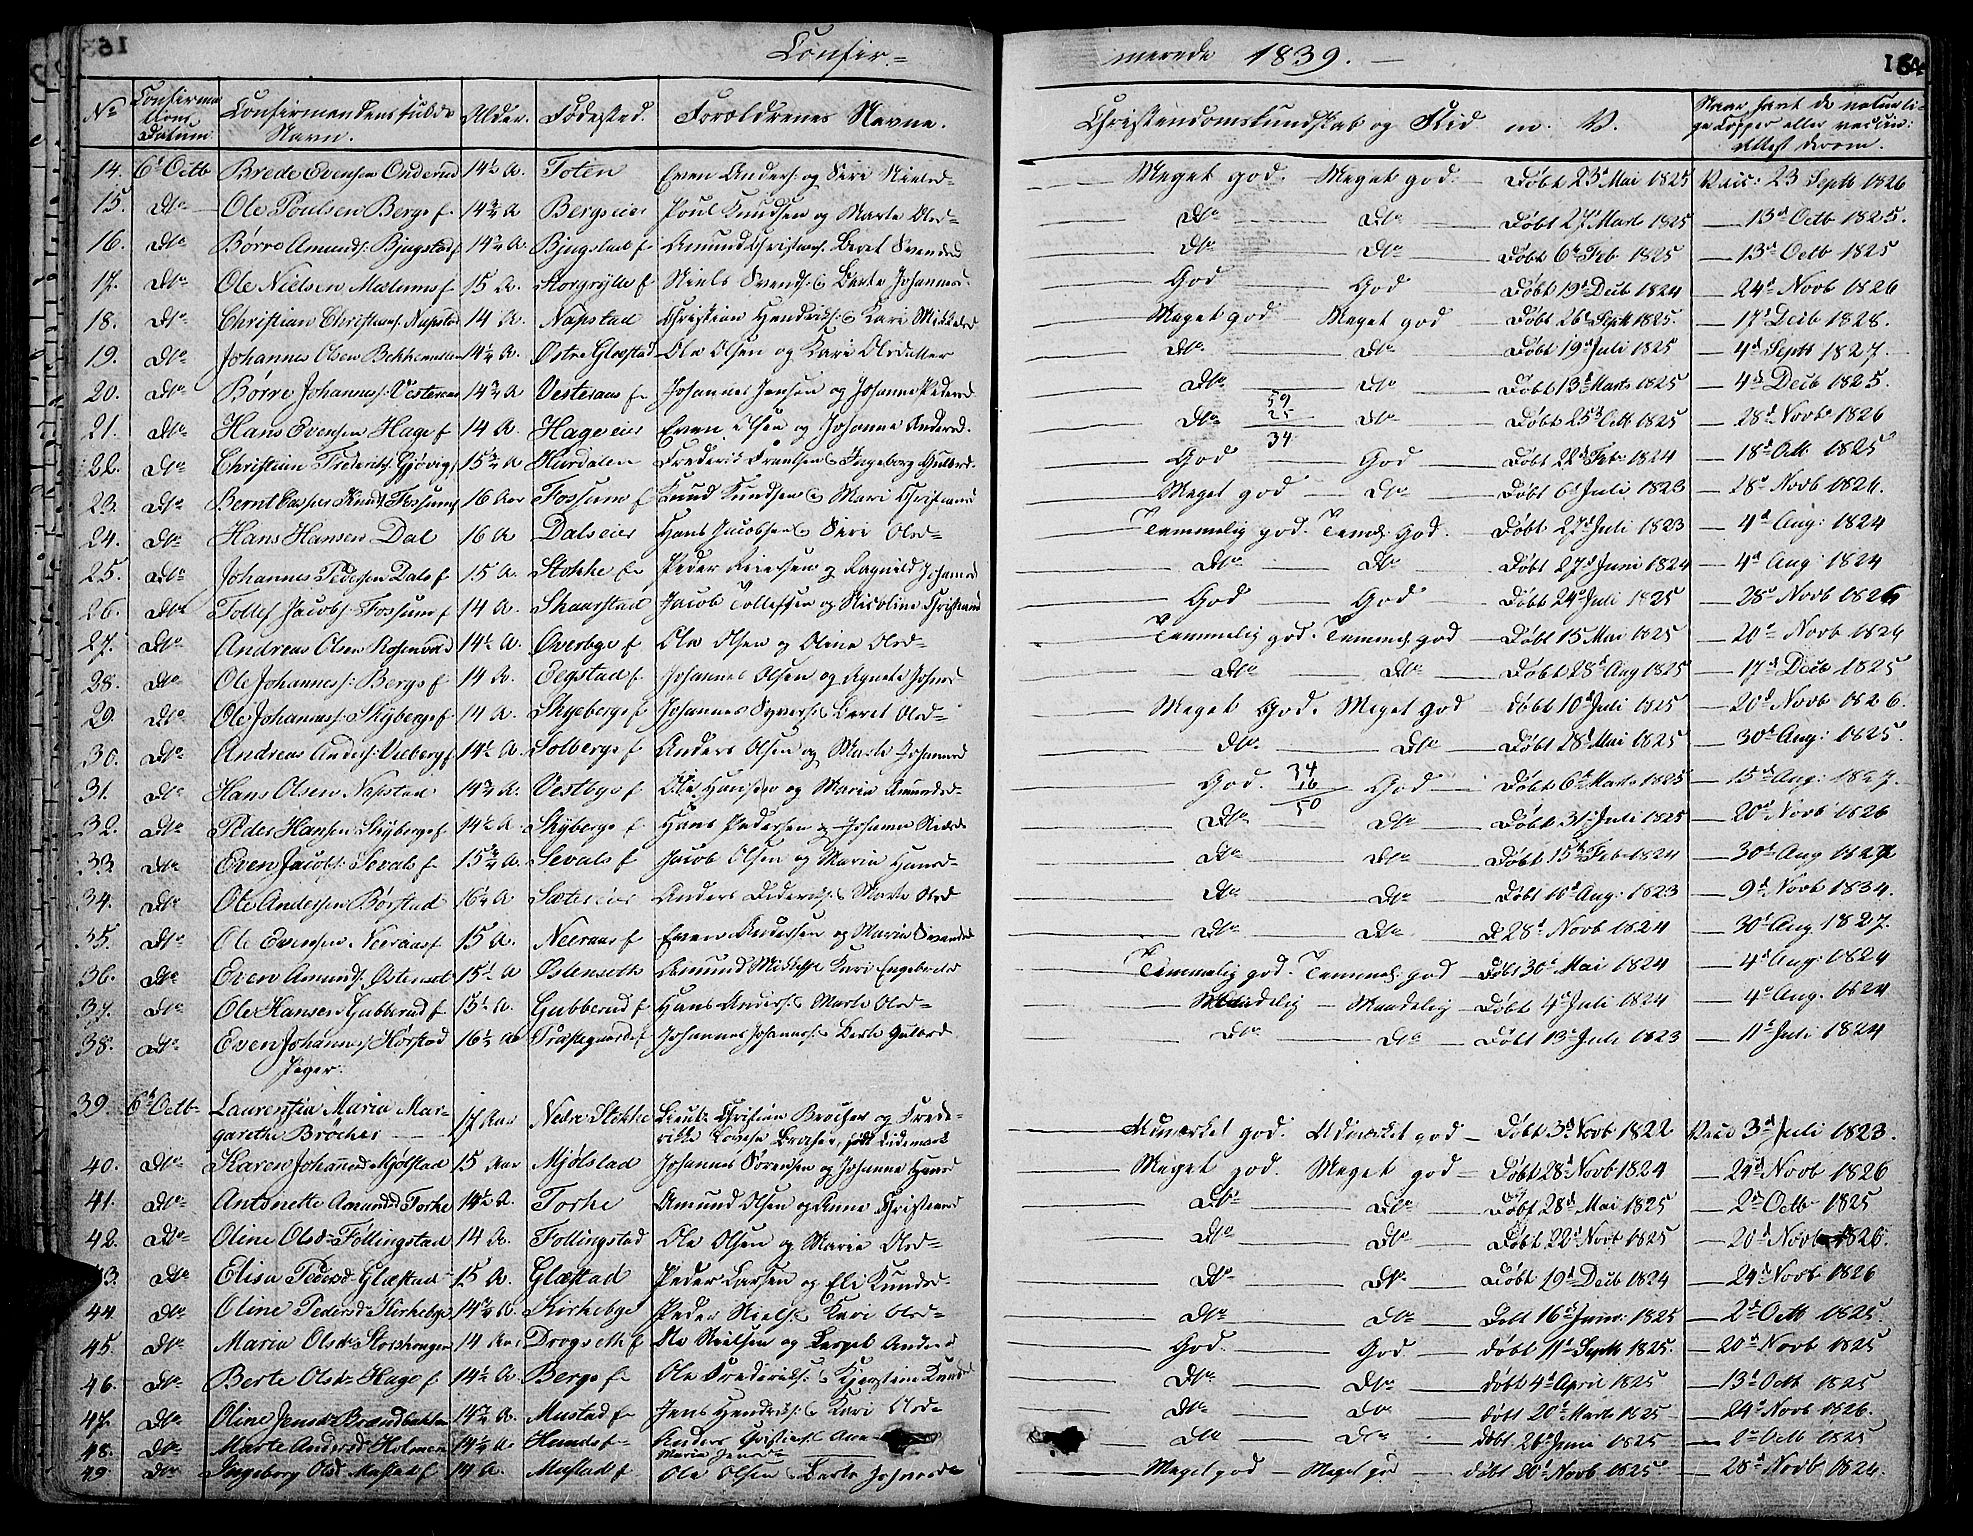 Confir= merede 1839. 164
No Confirmations Datum Confirmandens fulde Navn. Alder. Fødested. Forældrenes Navne. Christendomskundskab og Flid m. V. Naar havt de naturlige Kopper eller vaccin: Attest derom.
14. 6t Octb Brede Evensen Onderud 14½ A. Toten Even Anders: og Siri Nielsd= Meget god. Meget god. Døbt 23d Mai 1825 Vacc: 23 Septb 1826
15. Do Ole Poulsen Bergs f 14¾ A Bergseier Poul Knudsen og Marte Olsd= Do Do Døbt 27d Marts 1825 13d Octb 1825.
16. Do Børre Amunds: Bjugstad f 14¾ A Bjugstad f Amund Christians: Beret Svendsd Do Do Døbt 6t Feb 1825 13d Octb 1825
17. Do Ole Nielsen Mælums f 15 A. Storgrytte f Niels Svends: Berte Johannes: God God Døbt 19d Decb 1824 24d Novb 1826
18. Do Christian Christians: Napstad 14 A. Napstad Christian Hendriks: Kari Mikkelsd Meget god Meget god Døbt 26d Septb 1825. 17d Decb 1828.
19. Do Johannes Olsen 14¼ A. Østre Glæstad Ole Olsen og Kari Olsdatter Do Do Døbt 19d Juli 1825 4d Septb 1827.
20. Do Børre Johannes: Vesteraas 14¾ A Vesteraas f Johannes Jensen og Johanne Pedersd Do Do Døbt 13d Marts 1825 4d Decb 1825.
59
25
34
21. Do Hans Evensen Hage f 14 A. Hageeier Even Olsen og Johanne Andersd. Do Do Døbt 25d Octb 1825 28d Novb 1826
22. Do Christian Frederiks: Gjøvig 15¾ A Hurdalen Frederik Frantsen Ingeborg Gulbrd. God God Døbt 22d Feb 1824 18d Octb 1825
23. Do Bernt Casper Knuds: Fossums 16 Aar Fossums f Knud Knudsen Mari Christiansd Meget god Do Døbt 6d Juli 1823 28d Novb 1826.
24. Do Hans Hansen Dal 16 A Dalseier Hans Jacobsen Siri Olsd= Temmelig god. Temmel: God. Døbt 27d Juli 1823 4d Aug: 1824
25. Do Johannes Pedersen Dals f 15 A. Stokke f Peder Reiersen og Ragnild Johansd Do Do Døbt 27d Juni 1824 4d Aug 1824
26. Do Tollef Jacobs: Fossum f 14 A. Skaarstad Jacob Tollefsen og Nicoline Christiansd God God Døbt 24d Juli 1825 28d Novb 1826
27. Do Andreas Olsen Rosenvald 14½ A. Overbye f Ole Olsen og Oline Olsd= Temmelig god. Temmel: god Døbt 15 Mai 1825 20d Novb 1826
28. Do Ole Johannes: Bergs f 14 A. Oegstad f Johannes Olsen og Agnete Johnsd Do Do Døbt 28d Aug 1825 17d Decb 1825
29. Do Ole Johannes: Skyberg f 14 A. Skyeberg f Johannes Syvers: Beret Olsd= Meget God. Meget god Døbt 10d Juli 1825 20d Novb 1826.
30. Do Andreas Anders: Vieberg f 14½ A Solbergs f Anders Olsen og Marte Johannesd Do Do Døbt 28d Mai 1825 30d Aug: 1825.
34
16
50
31. Do Hans Olsen Napstad 14¾ A. Vestbye f Ole Hansen og Maria Amundsd= God. God Døbt 6d Marts 1825 15d Aug: 1827.
32. Do Peder Hansen Skyberg f 14½ A. Skyberg f Hans Pedersen og Johanne Nielsd Do Do Døbt 31d Juli 1825 20d Novb 1826
33 Do Even Jacobs: Sevals f 15¾ A. Sevals f Jacob Olsen og Maria Hansd= Do Do Døbt 15d Feb 1824 30d Aug 1827
34. Do Ole Andersen Børstad 16¼ A Sæterseier Anders Diderichs: Marte Olsd Do Do Døbt 10d Aug: 1823 9d Novb 1834.
35. Do Ole Evensen Neeraas f 15 A. Neeraas f Even Andersen og Maria Svendsd Do Do D 28d Novb 1824 30d Aug 1827.
36. Do Even Amunds: Østenseth 15¼ A Østenseth Amund Mikkels: Kari Engebretsd Temmelig god. Temmel: god Døbt 30d Mai 1824 4d Aug: 1824
37. Do Ole Hansen Gubberud f 15¼ A. Gubberud f Hans Anders: Marte Olsd= Maadelig Maadelig Døbt 4d Juli 1824 4d Aug. 1824
38. Do Even Johannes: Hørstad 16¼ A Præstegaards f Johannes Johannes: Berte Gulbrd Do Do Døbt 13d Juli 1823 11d Juli 1824
Piger:
39. 6t Octb Laurentia Maria Mar=
garethe Bröcher 17 Aar Nedre Stokke Lieut: Christian Bröcher og Frede=
rikke Lovise Bröcher, født Lidemark Udmærket god. Udmærket god Døbt 3d Novb 1822 Vacc 3d Juli 1823.
40. Do Karen Johannesd Mjølstad 15 Aar Mjølstad Johannes Sørensen og Johanne Hansd Meget god. Meget god Døbt 28d Novb 1824 24d Novb 1826
41. Do Antonette Amundsd Torke 14½ A. Torke Amund Olsen og Anne Christiansd Do Do Døbt 28d Mai 1825 2d Octb 1825
42. Do Oline Olsd= Føllingstad 14 A. Føllingstad Ole Olsen og Marie Olsd= Do Do Døbt 22d Novb 1825 20d Novb 1826.
43. Do Elisa Pedersd Glæstad 15 A. Glæstad Peder Larsen og Eli Knudsd. Do Do Døbt 19d Decb 1824 24d Novb 1826
44. Do Oline Pedersd= Kirkebye 14¾ A. Kirkebye Peder Niels: Kari Olsd= Do Do Døbt 16d Janr: 1825 2d Octb 1825.
45. Do Maria Olsd= Storshougen 14 Aar Drogseth f Ole Nielsen og Andersd God. God Døbt 11d Septb 1825. 20d Novb 1825
46. Do Berte Olsd= Hage f 14½ A. Bergs f Ole Frederiks: Kjerstine Knudsd Do Do døbt 4d April 1825 13d Octb 1825
47. Do Oline Jensd= Brændbakken 14¾ A. Mustad f Jens Hendriks: Kari Olsd= Do Do døbt 20d Marts 1825 24d Novb 1826.
48. Do Marte Andersd Holmen 14¼ A. Hunds f Anders Christians: Anne Maria Jensd Do Do døbt 26d Juni 1825 2d Octb 1825
49. Do Ingeborg Olsd Mustad f 14 A. Mustad f Ole Olsen Berte Johannesd= Meget god Meget god døbt 20d Novb 1825 28d Novb 1826.